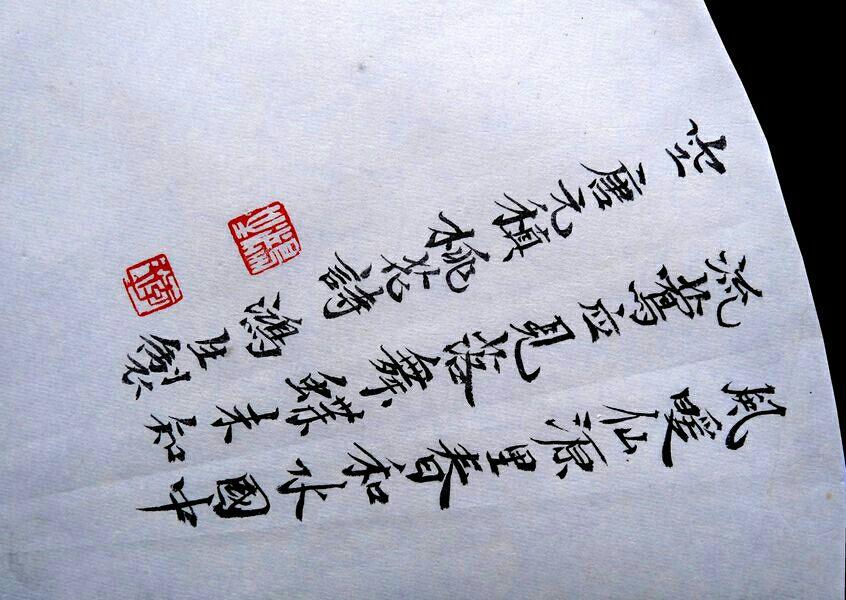 風暖仙源里春和水國中
流鶯应見落舞蝶未知
空唐元稹桃花詩鴻生製